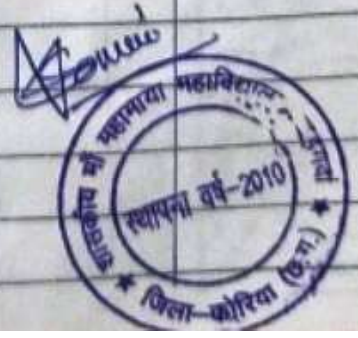 शासकीय माँ महामाया महाविद्यालय
स्थापना वर्ष-2010
★ जिला-कोरिया (छ.ग.) ★